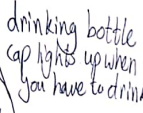 drinking bottle
cap lights up when
you have to drink